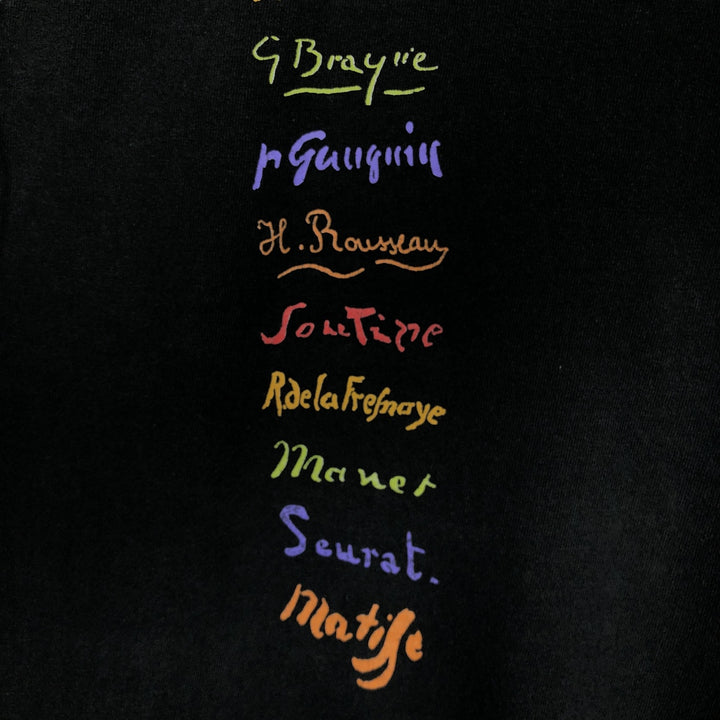 G Braque
P Gauguin
H. Rousseau
Soutine
R. de la Fresnaye
Manet
Seurat.
Matisse